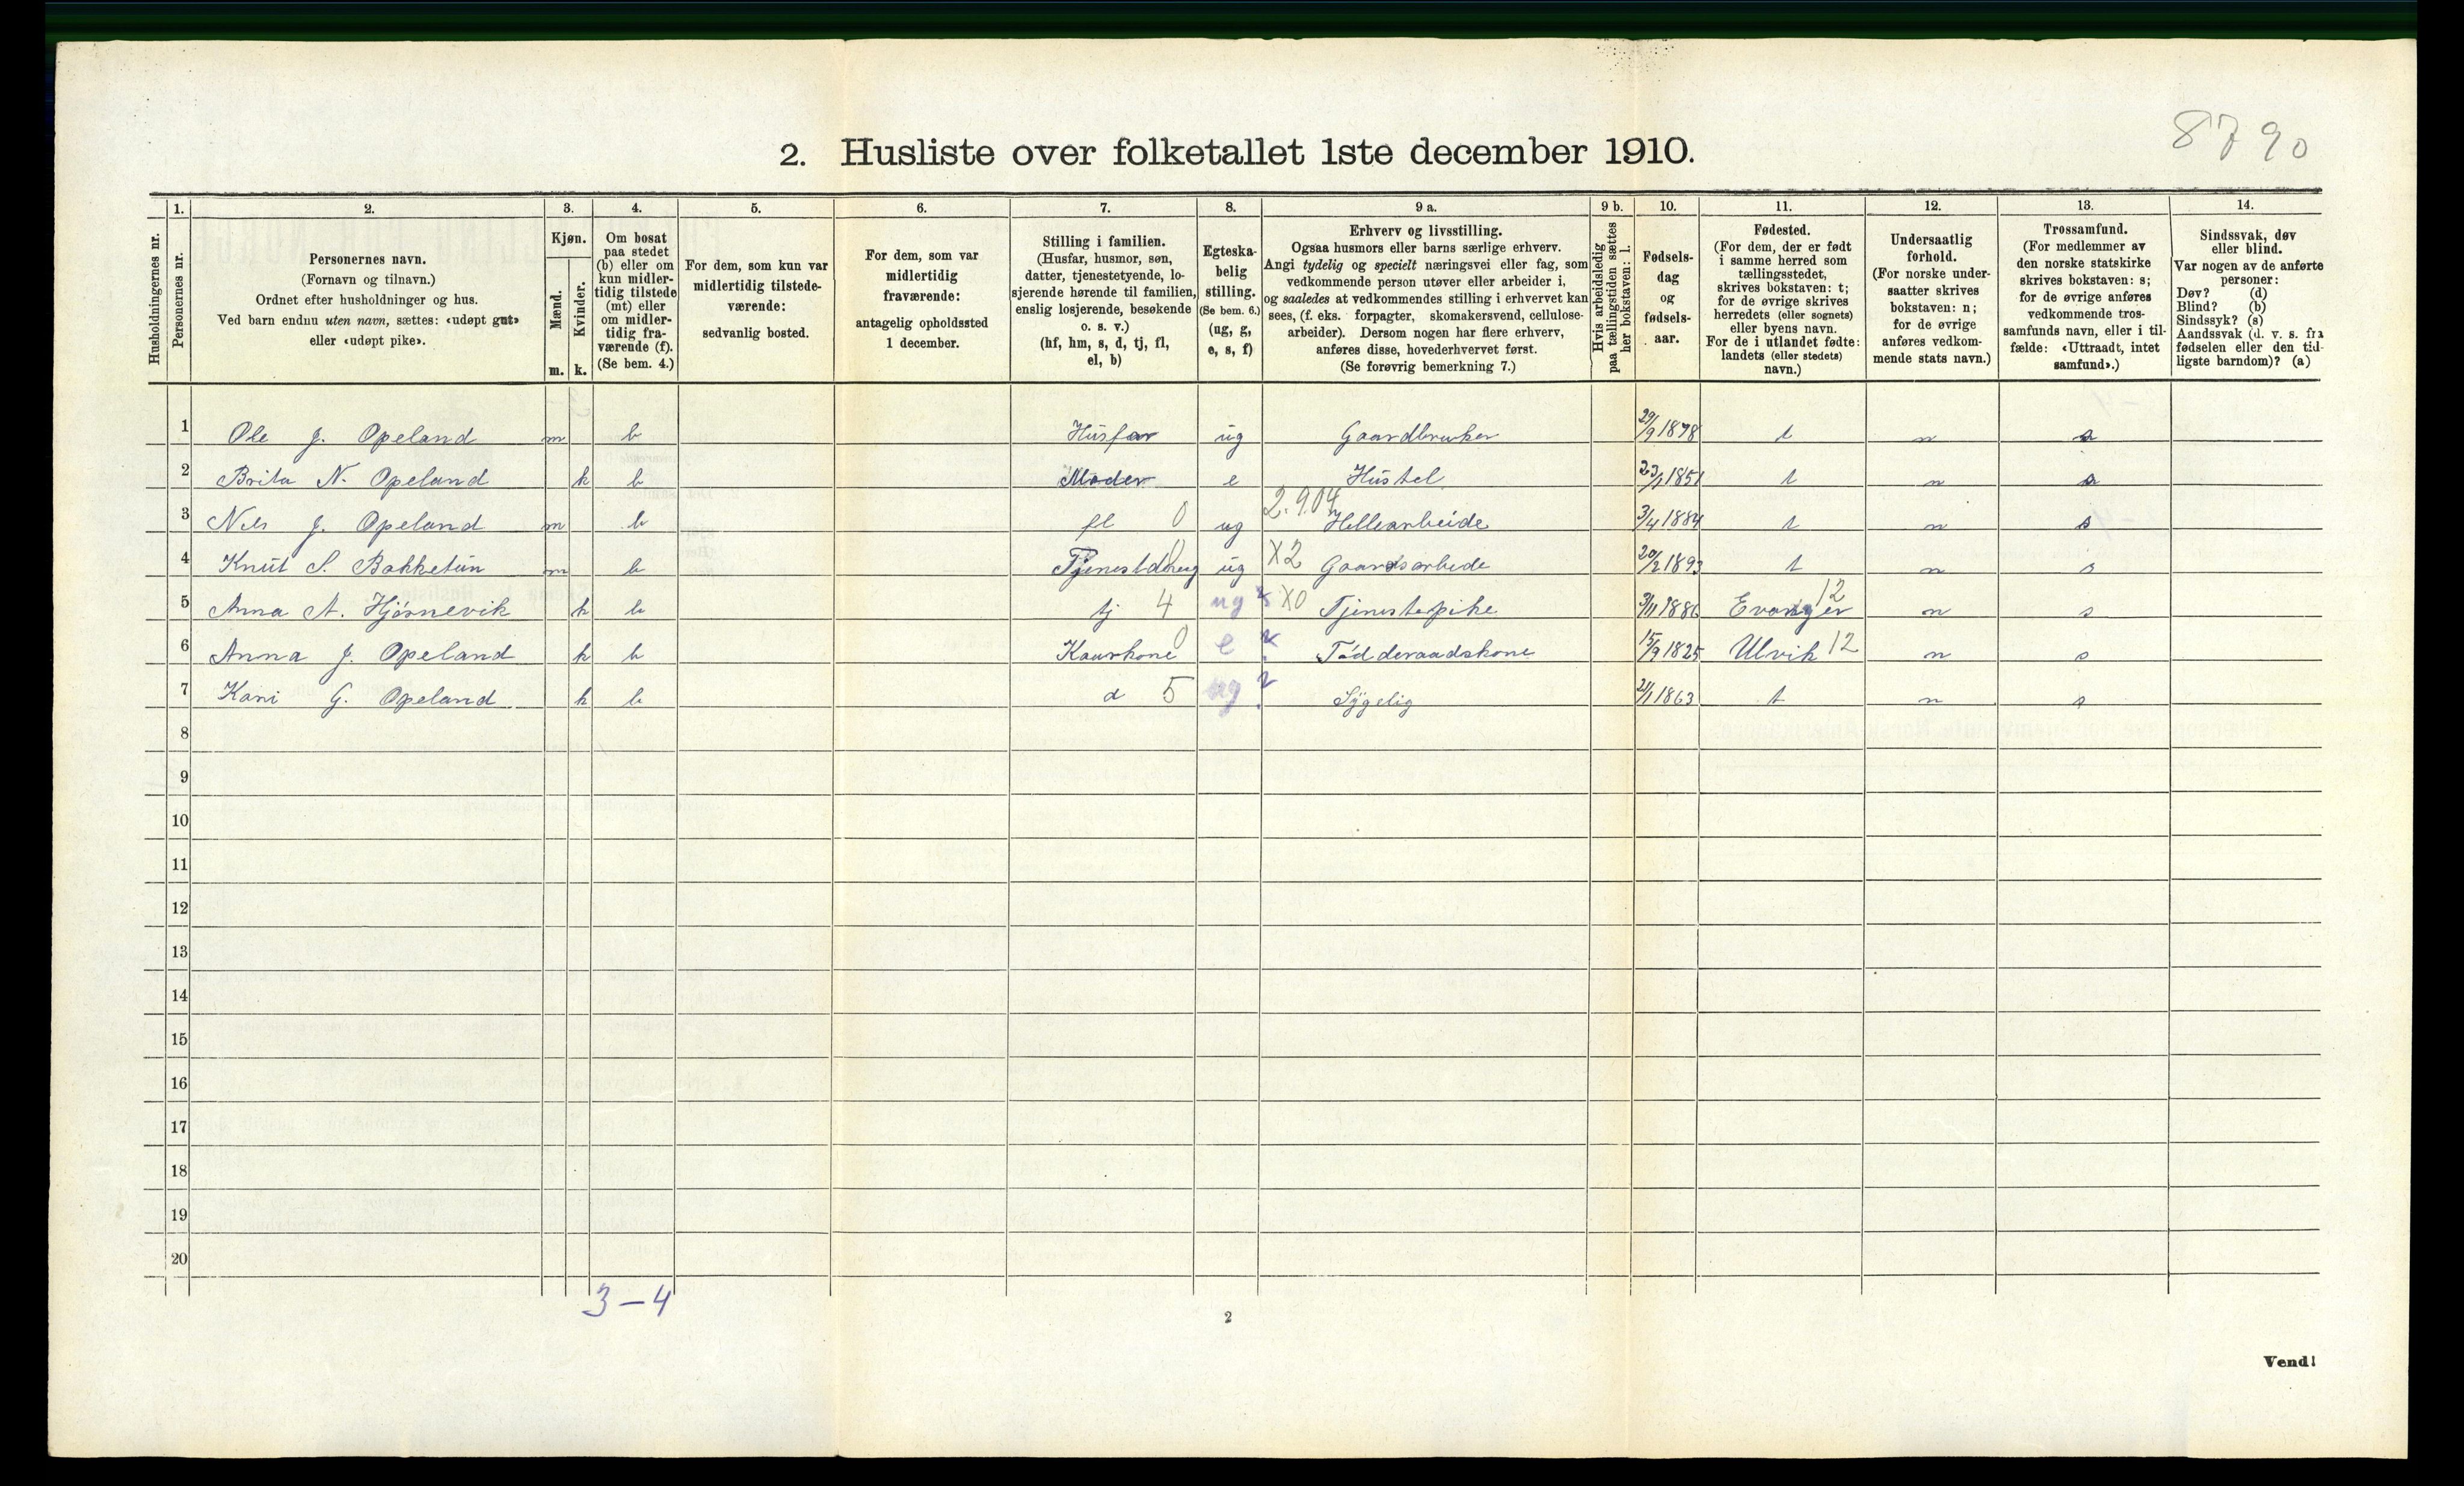 8790
2. Husliste over folketallet 1ste december 1910.
Husholdningernes nr.
1.
Personernes nr.
2.
Personernes navn.
(Fornavn og tilnavn.)
Ordnet efter husholdninger og hus.
Ved barn endnu uten navn, sættes: «udøpt gut»
eller «udøpt pike».
3.
Kjøn.
Mænd.
Kvinder.
m. k.
4.
Om bosat
paa stedet
(b) eller om
kun midler-
tidig tilstede
(mt) eller
om midler-
tidig fra-
værende (f).
(Se bem. 4.)
5.
For dem, som kun var
midlertidig tilstede-
værende:
sedvanlig bosted.
6.
For dem, som var
midlertidig
fraværende:
antagelig opholdssted
1 december.
7.
Stilling i familien.
(Husfar, husmor, søn,
datter, tjenestetyende, lo-
sjerende hørende til familien,
enslig losjerende, besøkende
o. s. v.)
(hf, hm, s, d, tj, fl,
el, b)
8.
Egteska-
belig
stilling.
(Se bem. 6.)
(ug, g,
e, s, f)
9 a.
Erhverv og livsstilling.
Ogsaa husmors eller barns særlige erhverv.
Angi tydelig og specielt næringsvei eller fag, som
vedkommende person utøver eller arbeider i,
og saaledes at vedkommendes stilling i erhvervet kan
sees, (f. eks. forpagter, skomakersvend, cellulose-
arbeider). Dersom nogen har flere erhverv,
anføres disse, hovederhvervet først.
(Se forøvrig bemerkning 7.)
9 b.
Hvis arbeidsledig
paa tællingstiden sættes
her bokstaven: l.
10.
Fødsels-
dag
og
fødsels-
aar.
11.
Fødested.
(For dem, der er født
i samme herred som
tællingsstedet,
skrives bokstaven: t;
for de øvrige skrives
herredets (eller sognets)
eller byens navn.
For de i utlandet fødte:
landets (eller stedets)
navn.)
12.
Undersaatlig
forhold.
(For norske under-
saatter skrives
bokstaven: n;
for de øvrige
anføres vedkom-
mende stats navn.)
13.
Trossamfund.
(For medlemmer av
den norske statskirke
skrives bokstaven: s;
for de øvrige anføres
vedkommende tros-
samfunds navn, eller i til-
fælde: «Uttraadt, intet
samfund».)
14.
Sindssvak, døv
eller blind.
Var nogen av de anførte
personer:
Døv? (d)
Blind? (b)
Sindssyk? (s)
Aandssvak (d. v. s. fra
fødselen eller den tid-
ligste barndom)? (a)
1 Ole J. Opeland m b Husfar ug Gaardbruker 29/9 1878 t n s
2 Brita N. Opeland k b Moder e Hustel 23/1 1851 t n s
3 Nils J. Opeland m b fl 0 ug 2.9.04 Hellearbeide 3/4 1884 t n s
4 Knut S. Bakketun m b Tjenestdreng 0 ug X2 Gaardsarbeide 20/2 1893 t n s
5 Anna A. Hjørnevik k b tj 4 ug ? X0 Tjenestepike 3/11 1886 Evanger 12 n s
6 Anna J. Opeland k b Kaarkone 0 e ? Føderaadskone 15/9 1825 Ulvik 12 n s
7 Kari G. Opeland k b d 5 ug ? Sygelig 21/1 1863 t n s
8
9
10
11
12
13
14
15
16
17
18
19
20
3-4
2
Vend!